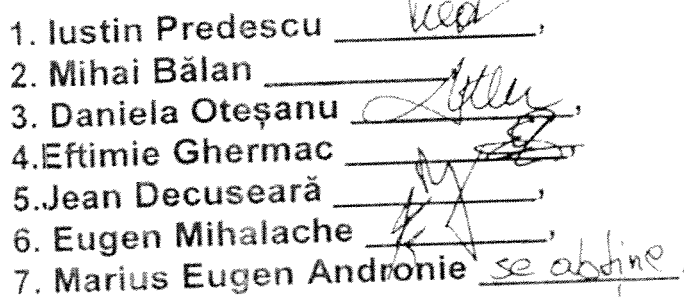 1. Iustin Predescu __________,
2. Mihai Bălan __________,
3. Daniela Oteșanu __________,
4.Eftimie Ghermac __________,
5.Jean Decuseară __________,
6. Eugen Mihalache __________,
7. Marius Eugen Andronie se abține